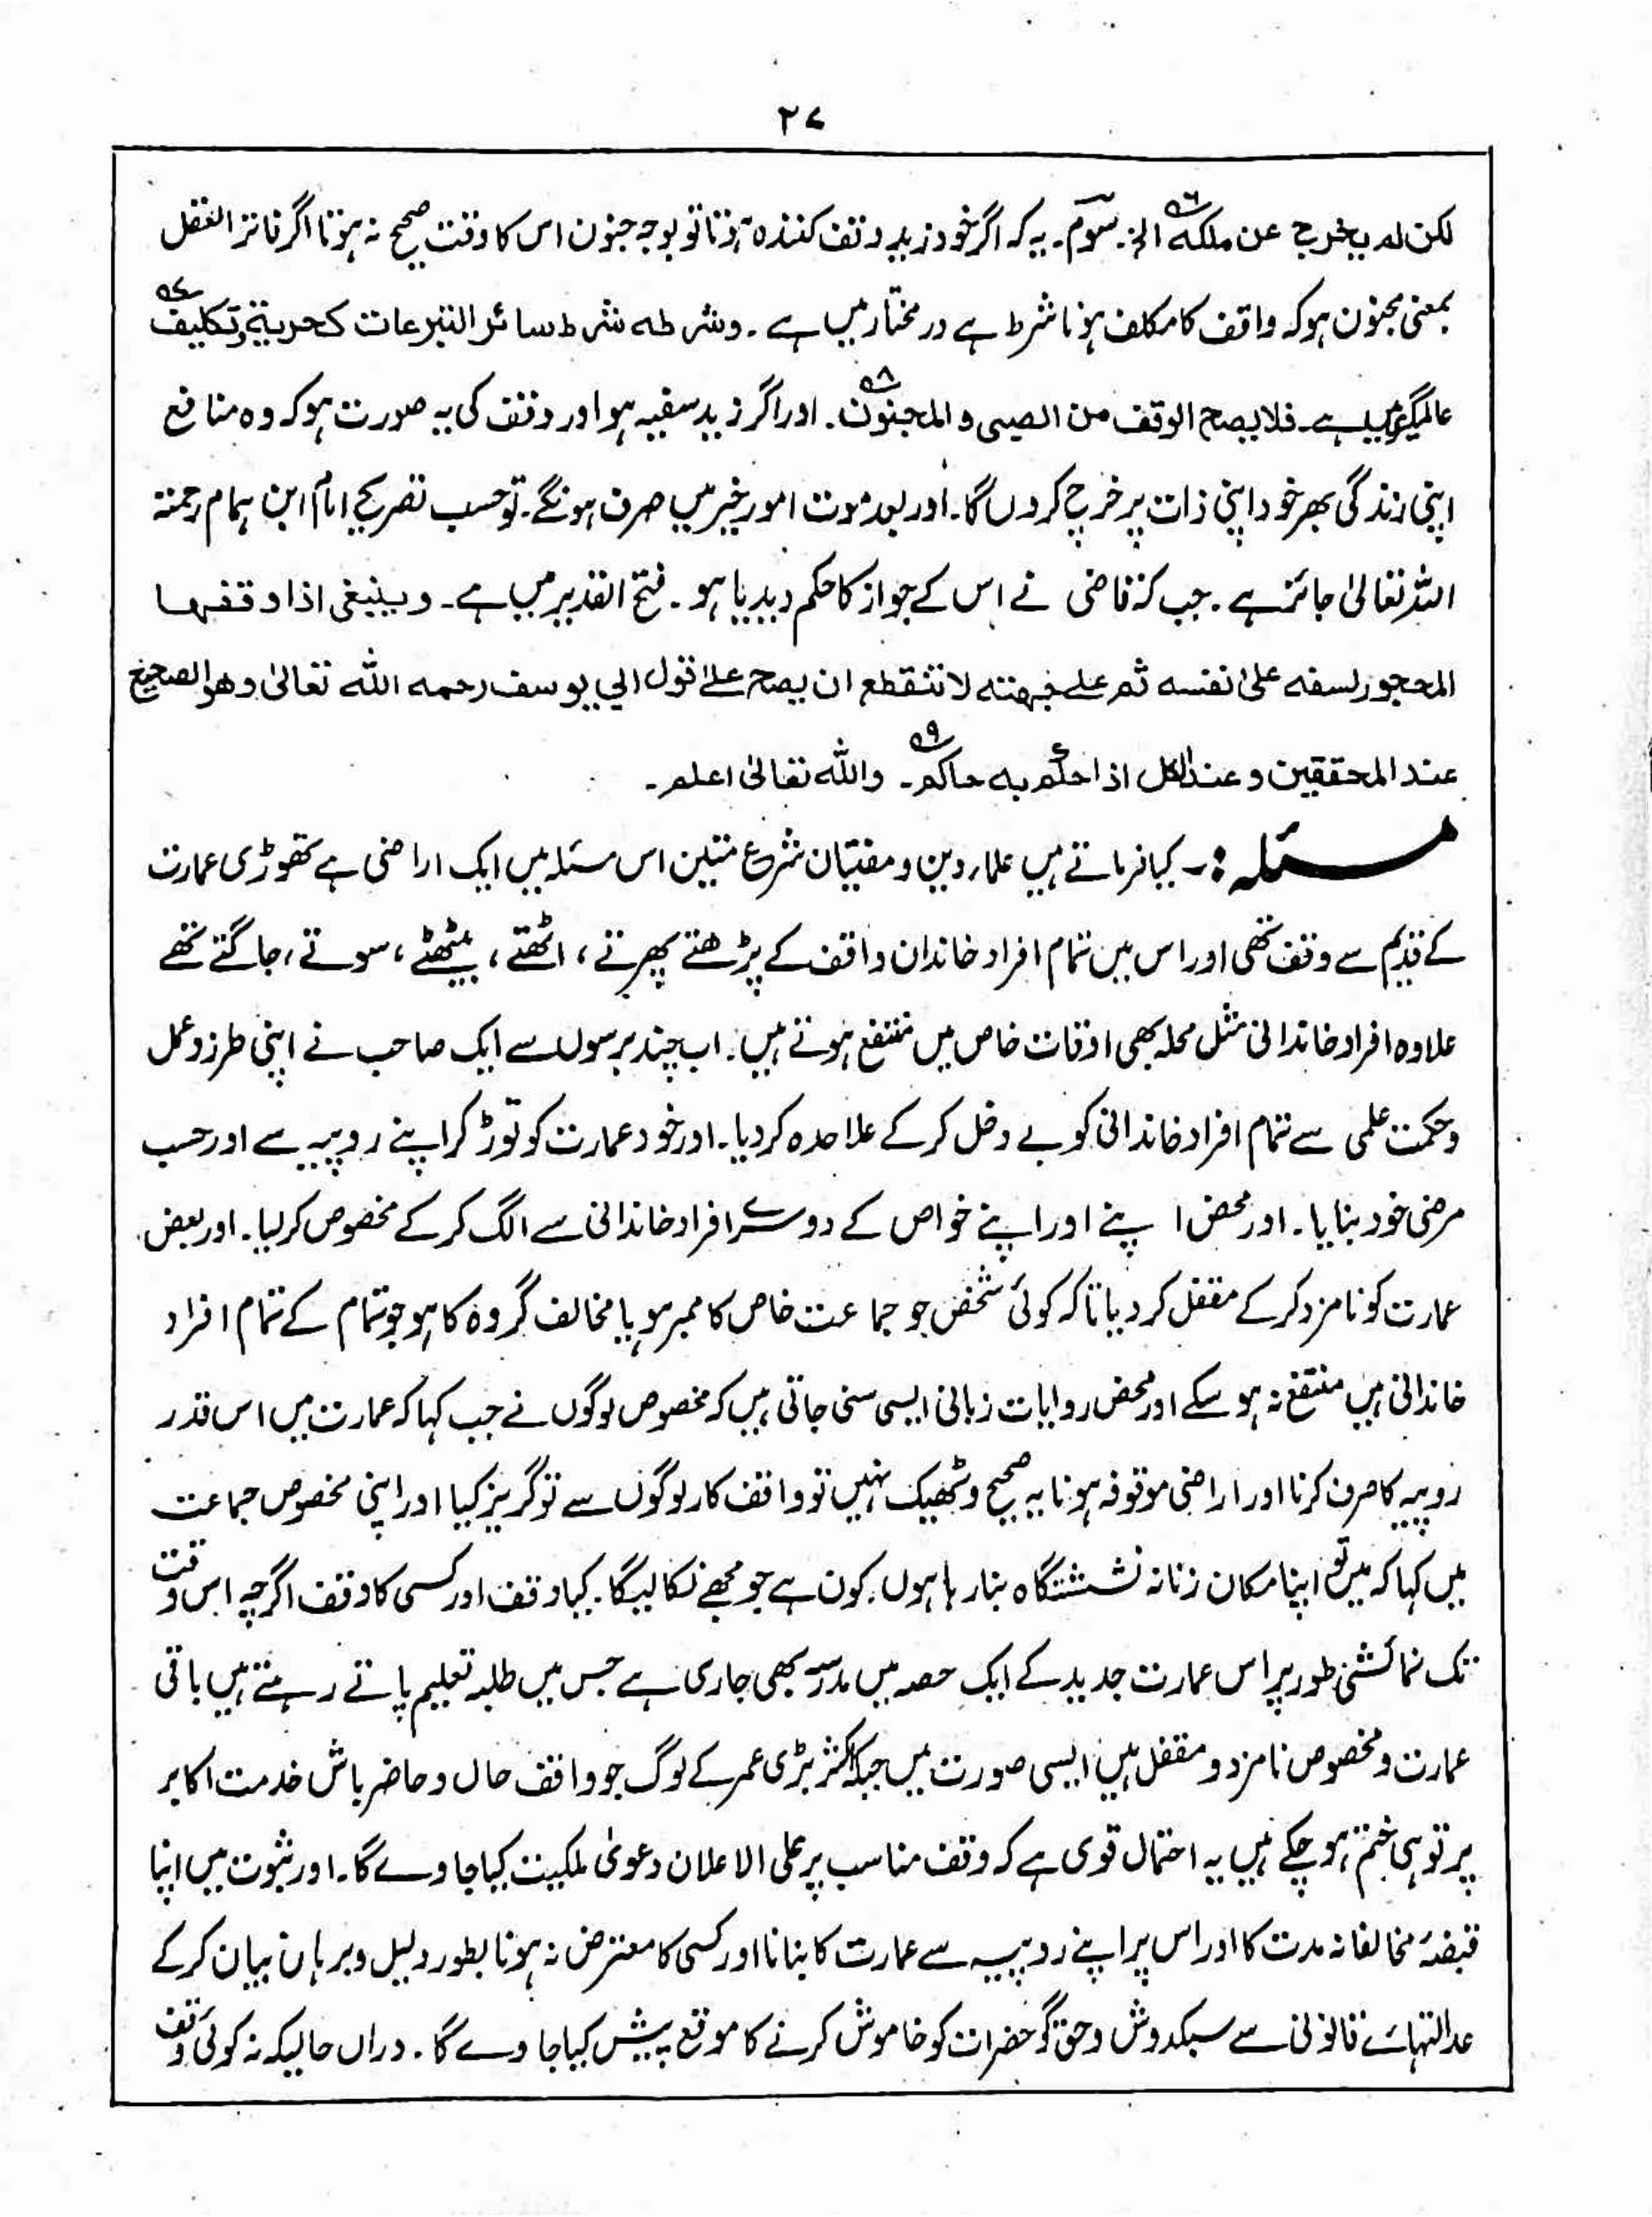 ۲۷
لکن لم یخرج عن ملکہ۵۶ الخ. سوم۔ یہ کہ اگر خود زید وقف کنندہ ہوتا تو بوجہ جنون اس کا وقف صحیح نہ ہوتا اگر فاتر العقل
بمعنی مجنون ہو کہ واقف کا مکلف ہونا شرط ہے در مختار میں ہے۔ وشرطہ شرط سائر التبرعات کحریۃ وتکلیف۵۷
عالمگیری میں ہے۔ فلا یصح الوقف من الصبی والمجنون۵۸۔ اور اگر زید سفیہ ہو اور وقف کی یہ صورت ہو کہ وہ منافع
اپنی زندگی بھر خود اپنی ذات پر خرچ کروں گا۔ اور بعد موت امور خیر میں صرف ہونگے۔ تو حسب تصریح امام ابن ہمام رحمتہ
اللہ تعالیٰ جائز ہے۔ جب کہ قاضی نے اس کے جواز کا حکم دیدیا ہو۔ فتح القدیر میں ہے۔ وینبغی اذا وقفھا
المحجور لسفہ علیٰ نفسہ ثم علی جہتہ لا تنقطع ان یصح علیٰ قول ابی یوسف رحمہ اللہ تعالیٰ وھو الصحیح
عند المحققین وعند الکل اذا حکم بہ حاکم۵۹۔ واللہ تعالیٰ اعلم۔
مسئلہ :۔ کیا فرماتے ہیں علماء دین و مفتیان شرع متین اس مسئلہ میں ایک اراضی ہے تھوڑی عمارت
کے قدیم سے وقف تھی اور اس میں تمام افراد خاندان واقف کے پڑھتے پھرتے، اٹھتے، بیٹھتے، سوتے، جاگتے تھے
علاوہ افراد خاندانی مثل محلہ بھی اوقات خاص میں منتفع ہوتے ہیں۔ اب چند برسوں سے ایک صاحب نے اپنی طرز و عمل
و حکمت علمی سے تمام افراد خاندانی کو بے دخل کر کے علاحدہ کر دیا۔ اور خود عمارت کو توڑ کر اپنے روپیہ سے اور حسب
مرضی خود بنایا۔ اور محض اپنے اور اپنے خواص کے دوسرے افراد خاندانی سے الگ کر کے مخصوص کر لیا۔ اور بعض
عمارت کو نامزد کر کے مقفل کر دیا تاکہ کوئی شخص جو جماعت خاص کا ممبر ہو یا مخالف گروہ کا ہو جو تمام کے تمام افراد
خاندانی ہیں منتفع نہ ہو سکے اور محض روایات زبانی ایسی سنی جاتی ہیں کہ مخصوص لوگوں نے جب کہا کہ عمارت میں اس قدر
روپیہ کا صرف کرنا اور اراضی موقوفہ ہونا یہ صحیح و ٹھیک نہیں تو واقف کار لوگوں سے تو گریز کیا اور اپنی مخصوص جماعت
میں کہا کہ میں تو اپنا مکان زنانہ نشستگاہ بنا رہا ہوں۔ کون ہے جو مجھے نکالیگا۔ کیا وقف اور کسی کا وقف اگرچہ اس وقت
تک نمائشی طور پر اس عمارت جدید کے ایک حصہ میں مدرسہ بھی جاری ہے جس میں طلبہ تعلیم پاتے رہتے ہیں باقی
عمارت و مخصوص نامزد و مقفل ہیں ایسی صورت میں جبکہ اکثر بڑی عمر کے لوگ جو واقف حال و حاضر باش خدمت اکابر
پر تو ہی ختم ہو چکے ہیں یہ احتمال قوی ہے کہ وقف مناسب پر علی الاعلان دعویٰ ملکیت کیا جاوے گا۔ اور ثبوت میں اپنا
قبضۂ مخالفانہ مدت کا اور اس پر اپنے روپیہ سے عمارت کا بنانا اور کسی کا معترض نہ ہونا بطور دلیل و برہان بیان کر کے
عدالتہائے قانونی سے سبکدوش و حق گو حضرات کو خاموش کرنے کا موقع پیش کیا جاوے گا۔ دراں حالیکہ نہ کوئی وقف